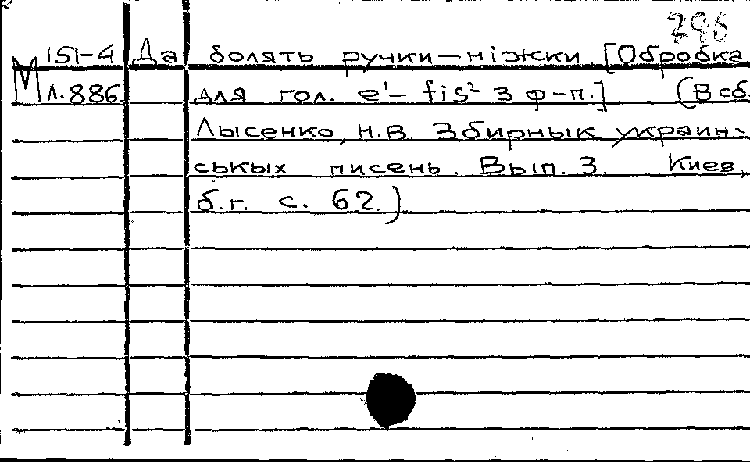 296
М 151-4 Да болять ручки-ніжки [Обробка
Л.886 для гол. e¹- fis² з ф-п.] (В сб.
Лысенко, Н.В. Збирнык украин-
ськых писень. Вып. 3. Киев,
б.г. с. 62.)